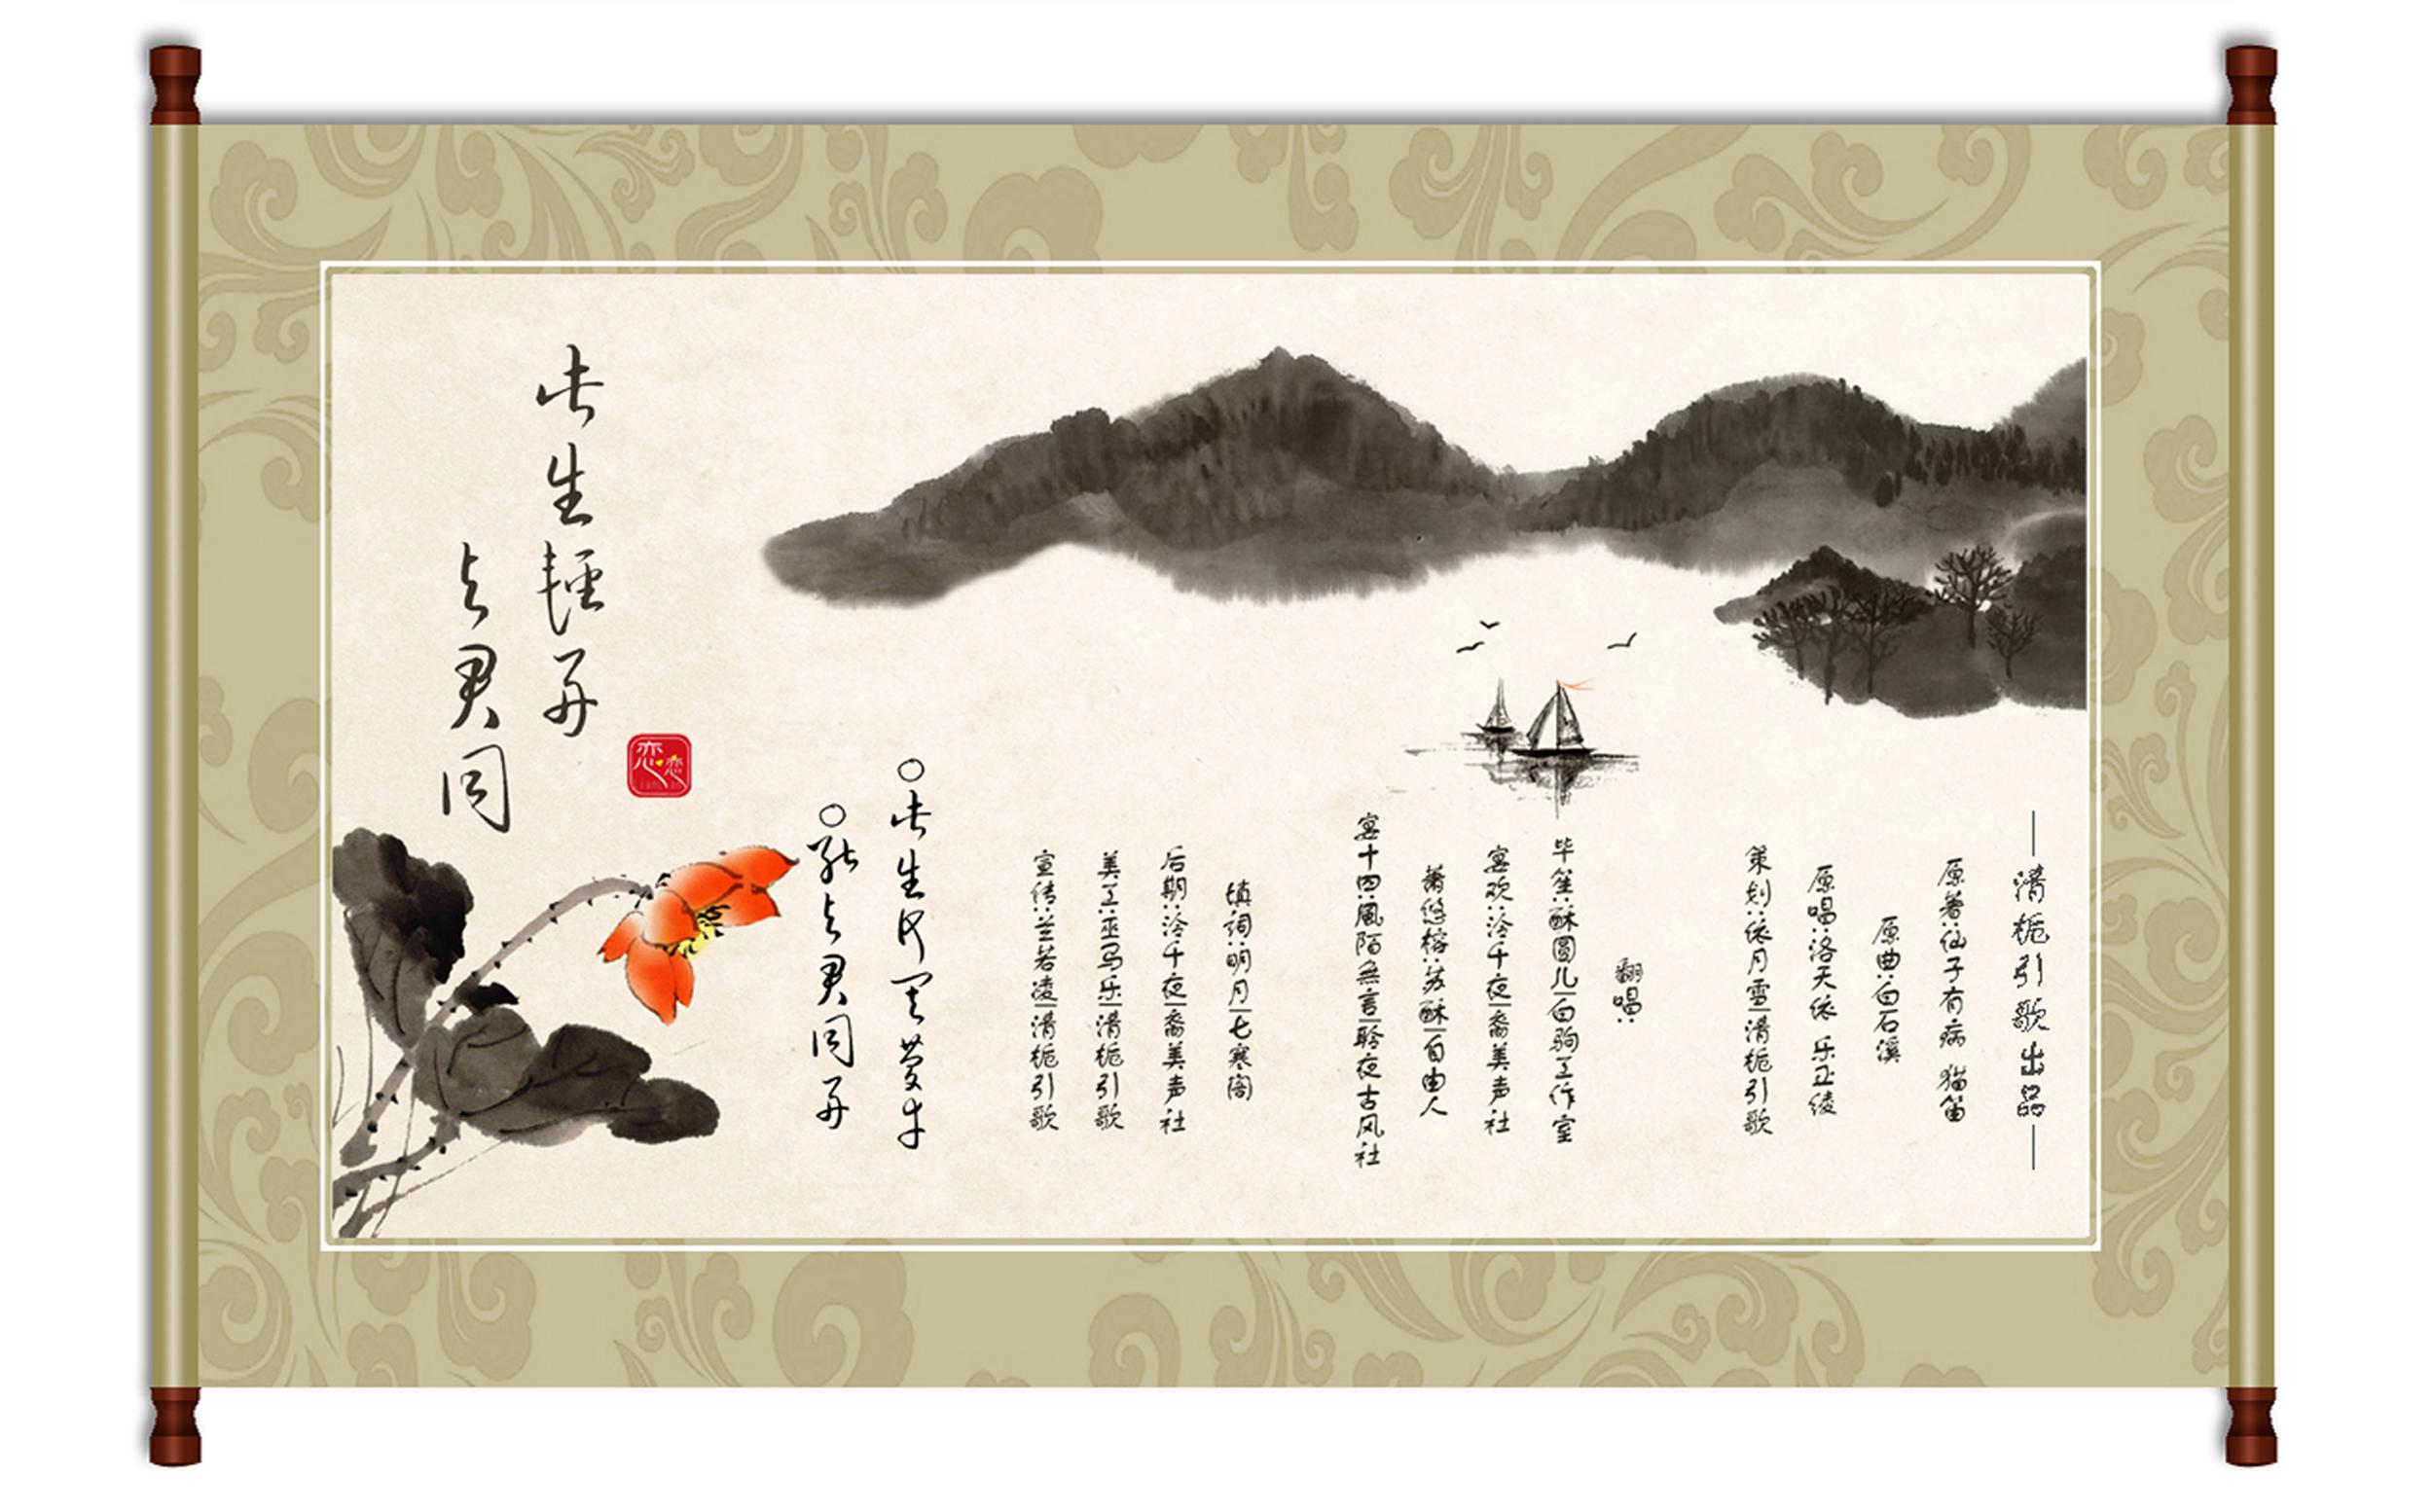 —清栀引歌出品—
原著:仙子有病 猫笛
原曲:白石溪
原唱:洛天依 乐正绫
策划:依月雪|清栀引歌
翻唱:
毕笙:酥圆儿|白驹工作室
宴欢:泠千夜|裔美声社
萧悠榕:苏酥|自由人
宴十四:風陌無言|聆夜古风社
填词:明月|七寒阁
后期:泠千夜|裔美声社
美工:巫马乐|清栀引歌
宣传:兰若凌|清栀引歌
○此生何其萬幸
○能与君同舟
此生輕舟
与君同
恋恋